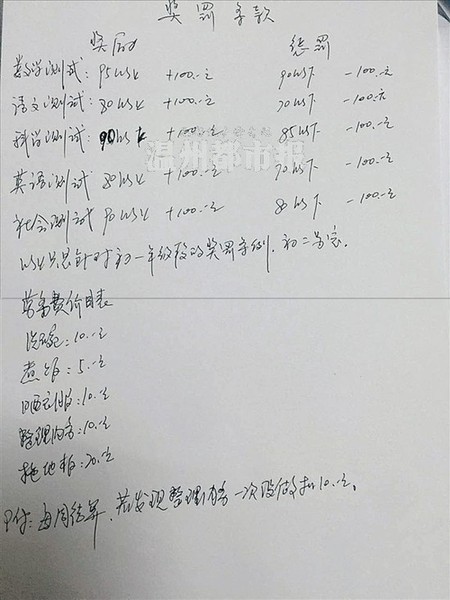 奖罚条款
奖励 惩罚
数学测试: 95以上 +100.-元 90以下 -100.元
语文测试: 80以上 +100.-元 70以下 -100.元
科学测试: 90以上 +100.-元 85以下 -100.-元
温州都市报
英语测试 80以上 +100.-元 70以下 -100.-元
社会测试 90以上 +100.-元 80以下 -100.-元
以上只是针对初一年级段的奖罚条例, 初二另定.
劳务费价目表
洗碗: 10.-元
煮饭: 5.-元
晒衣服: 10.-元
整理内务: 10.-元
拖地板: 20.元
每周结算, 若发现整理内务一次没做扣10.-元.